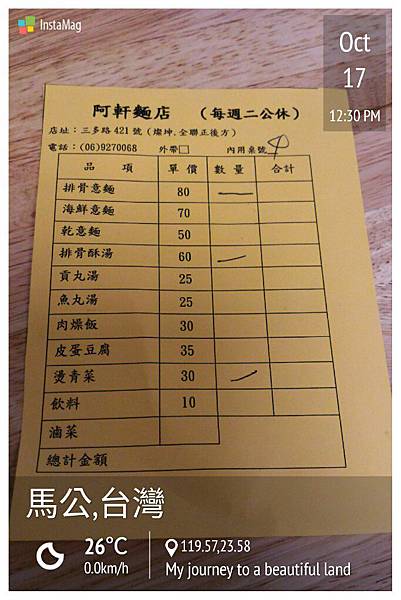 InstaMag
Oct
17
12:30 PM
阿軒麵店 （每週二公休）
店址：三多路421號（燦坤.全聯正後方）
電話：(06)9270068 外帶□ 內用桌號 4
品項 單價 數量 合計
排骨意麵 80 一
海鮮意麵 70
乾意麵 50
排骨酥湯 60 一
貢丸湯 25
魚丸湯 25
肉燥飯 30
皮蛋豆腐 35
燙青菜 30 一
飲料 10
滷菜
總計金額
馬公,台灣
26°C
0.0km/h
119.57,23.58
My journey to a beautiful land